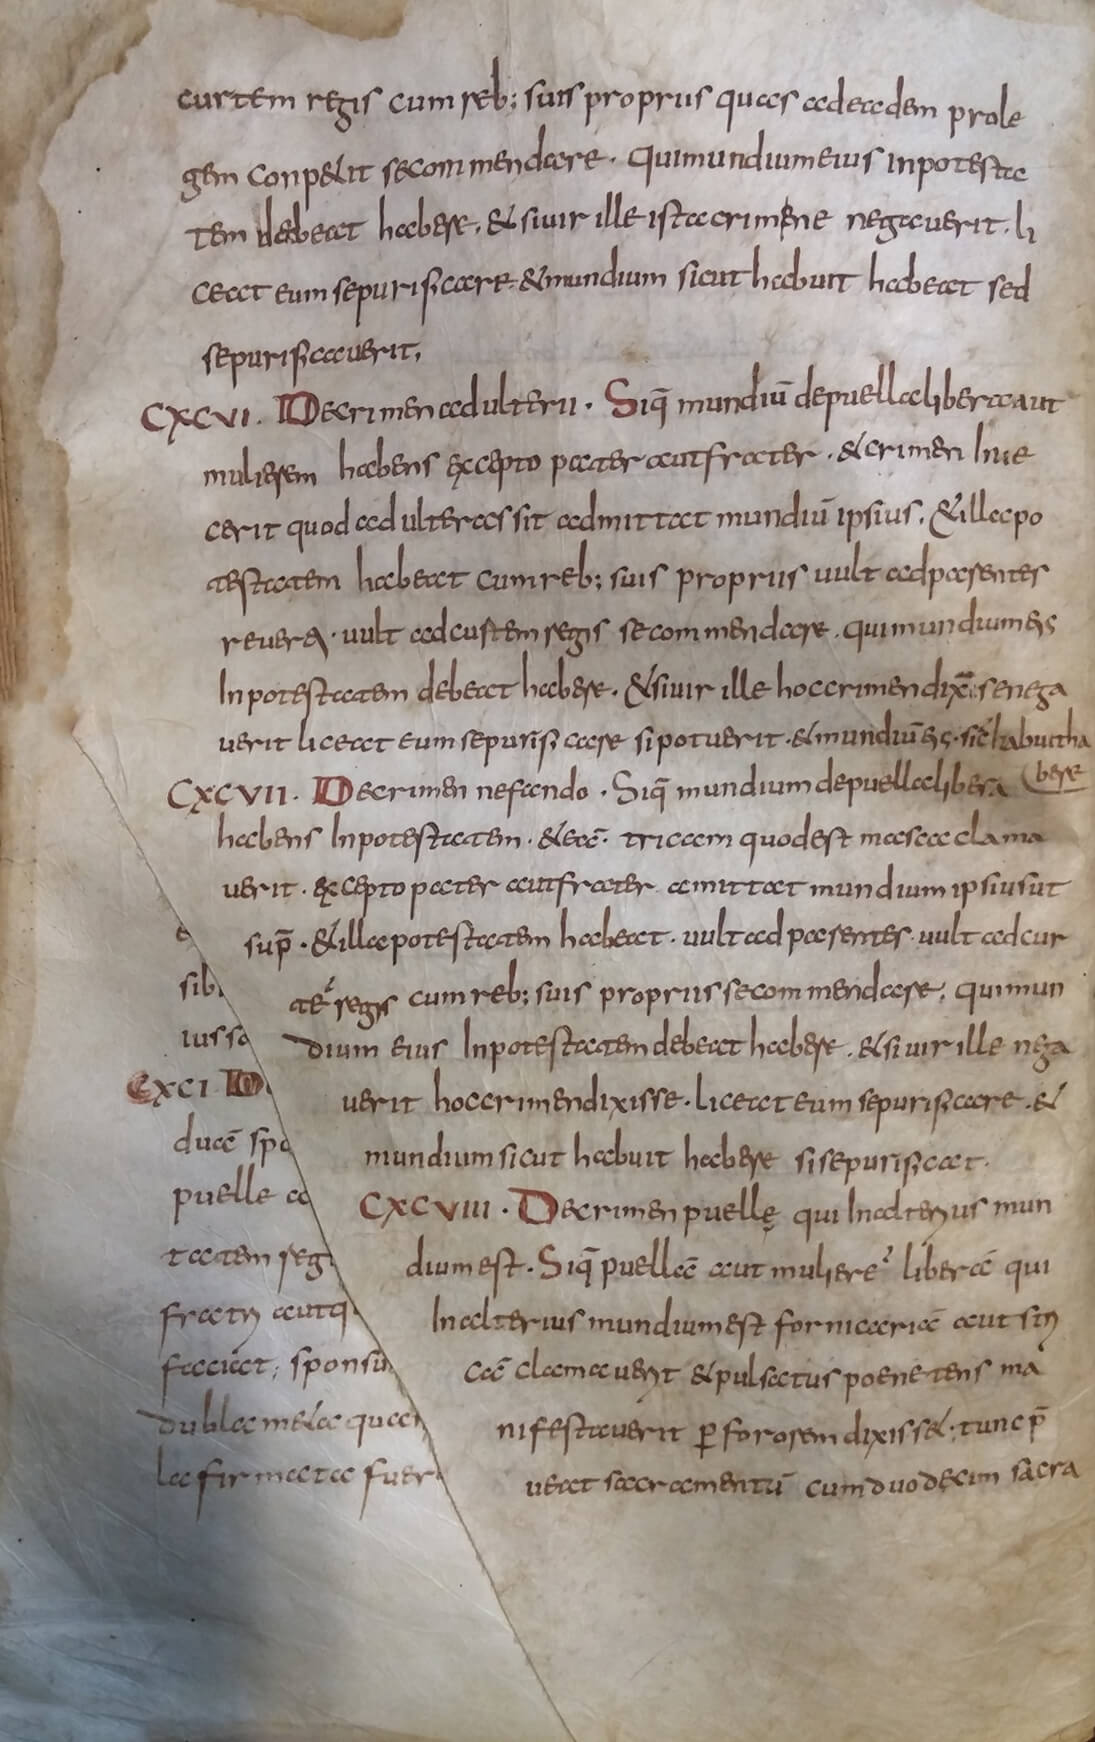 curtem regis cum reb; suis propriis quas ad eadem prole
gem conpelit se commendare. qui mundium eius in potesta
tem debeat habere, & si uir ille ista crimene negauerit. li
ceat eum se purificare & mundium sicut habuit habeat sed
se purificauerit,
CXCVI. De crimen adulterii. Siq̄ mundiū de puella libera aut
mulierem habens excepto pater aut frater. & crimen
cerit quod adulteras sit admittat mundiū ipsius. & illa po
testatem habeat cum reb; suis propriis uult ad parentes
 uult ad curtem regis se commendare. qui mundium eis
In potestatem debeat habere. & si uir ille hoc crimen se nega
uerit liceat eum se purificare si potuerit. & mundiū habuit ha
bere
CXCVII. De crimen nefando. Siq̄ mundium de puella libera
habens In potestatem. & eā. tricam quod est masca clama
uerit. excepto pater aut frater amittat mundium ipsius ut
sup̄. & illa potestatem habeat. uult ad parentes. uult ad cur
tē regis cum reb; suis propriis se commendare, qui mun
dium eius In potestatem debeat habere. & si uir ille nega
uerit hoc crimen dixisse. liceat eum se purificare. &
mundium sicut habuit habere si se purificat.
CXCVIII. De crimen puellę qui In alterius mun
dium est. Siq̄ puellā aut mulierē liberā qui
In alterius mundium est fornicariā aut stri
cā clamauerit & pulsatus poenetens ma
nifestauerit ꝑ fororem dixisse; tunc p̄
ueat sacramentū cum duodecim sacra
e
sib
ius
CXCI D
ducē spo
puelle a
tatem reg
 aut
faciat; sponsu
dubla mela qua
la firmata fuer